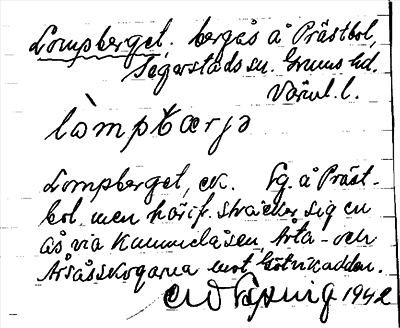 Lompberget. bergås å Prästbol,
Segerstads sn. Grums hd.
Värml. l.
lòmpbærjə
Lompberget, ek. Lg. å Präst-
bol men härifr. sträcker sig en
ås via Kummelåsen, Åta- och
Åråsskogarna mot
1942